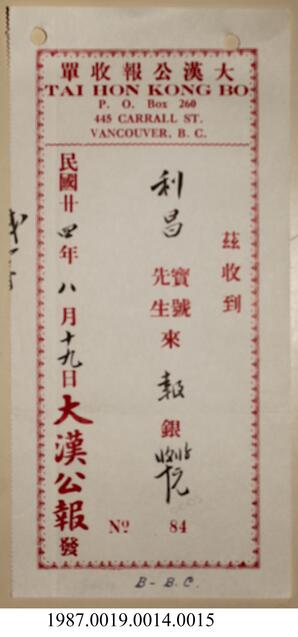 大漢公報收單
TAI HON KONG BO
P. O. Box 260
445 CARRALL ST.
VANCOUVER, B. C.
茲收到
利昌
寶號
先生
來報銀
No 84
民國廿四年八月十九日大漢公報發
B - B.C.
1987.0019.0014.0015